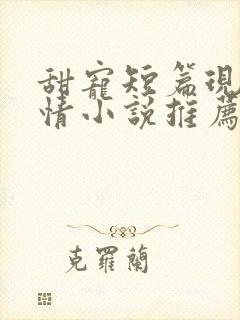 甜寵短篇現
情小説推薦
克羅蘭